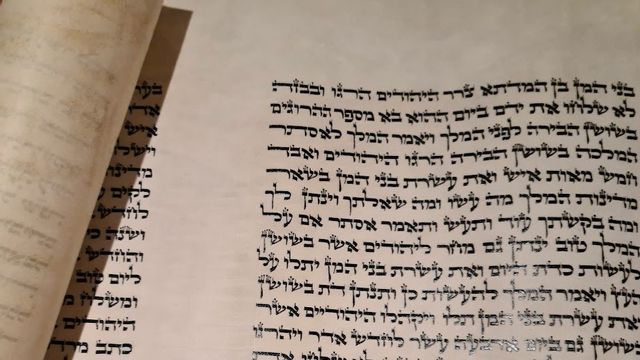 בני המן בן המדתא צרר היהודים הרגו ובבזה
לא שלחו את ידם ביום ההוא בא מספר ההרוגים
בשושן הבירה לפני המלך ויאמר המלך לאסתר
המלכה בשושן הבירה הרגו היהודים ואבד
חמש מאות איש ואת עשרת בני המן בשאר
מדינות המלך מה עשו ומה שאלתך וינתן לך
ומה בקשתך עוד ותעש ותאמר אסתר אם על
המלך טוב ינתן גם מחר ליהודים אשר בשושן
לעשות כדת היום ואת עשרת בני המן יתלו על
העץ ויאמר המלך להעשות כן ותנתן דת בשושן
ואת עשרת בני המן תלו ויקהלו היהודים אשר
בשושן גם ביום ארבעה עשר לחדש אדר ויהרגו
איש
וישלח
לקים
לחדש
ושנה
והחדש
ליום טוב
ומשלח
היהודים
כתב